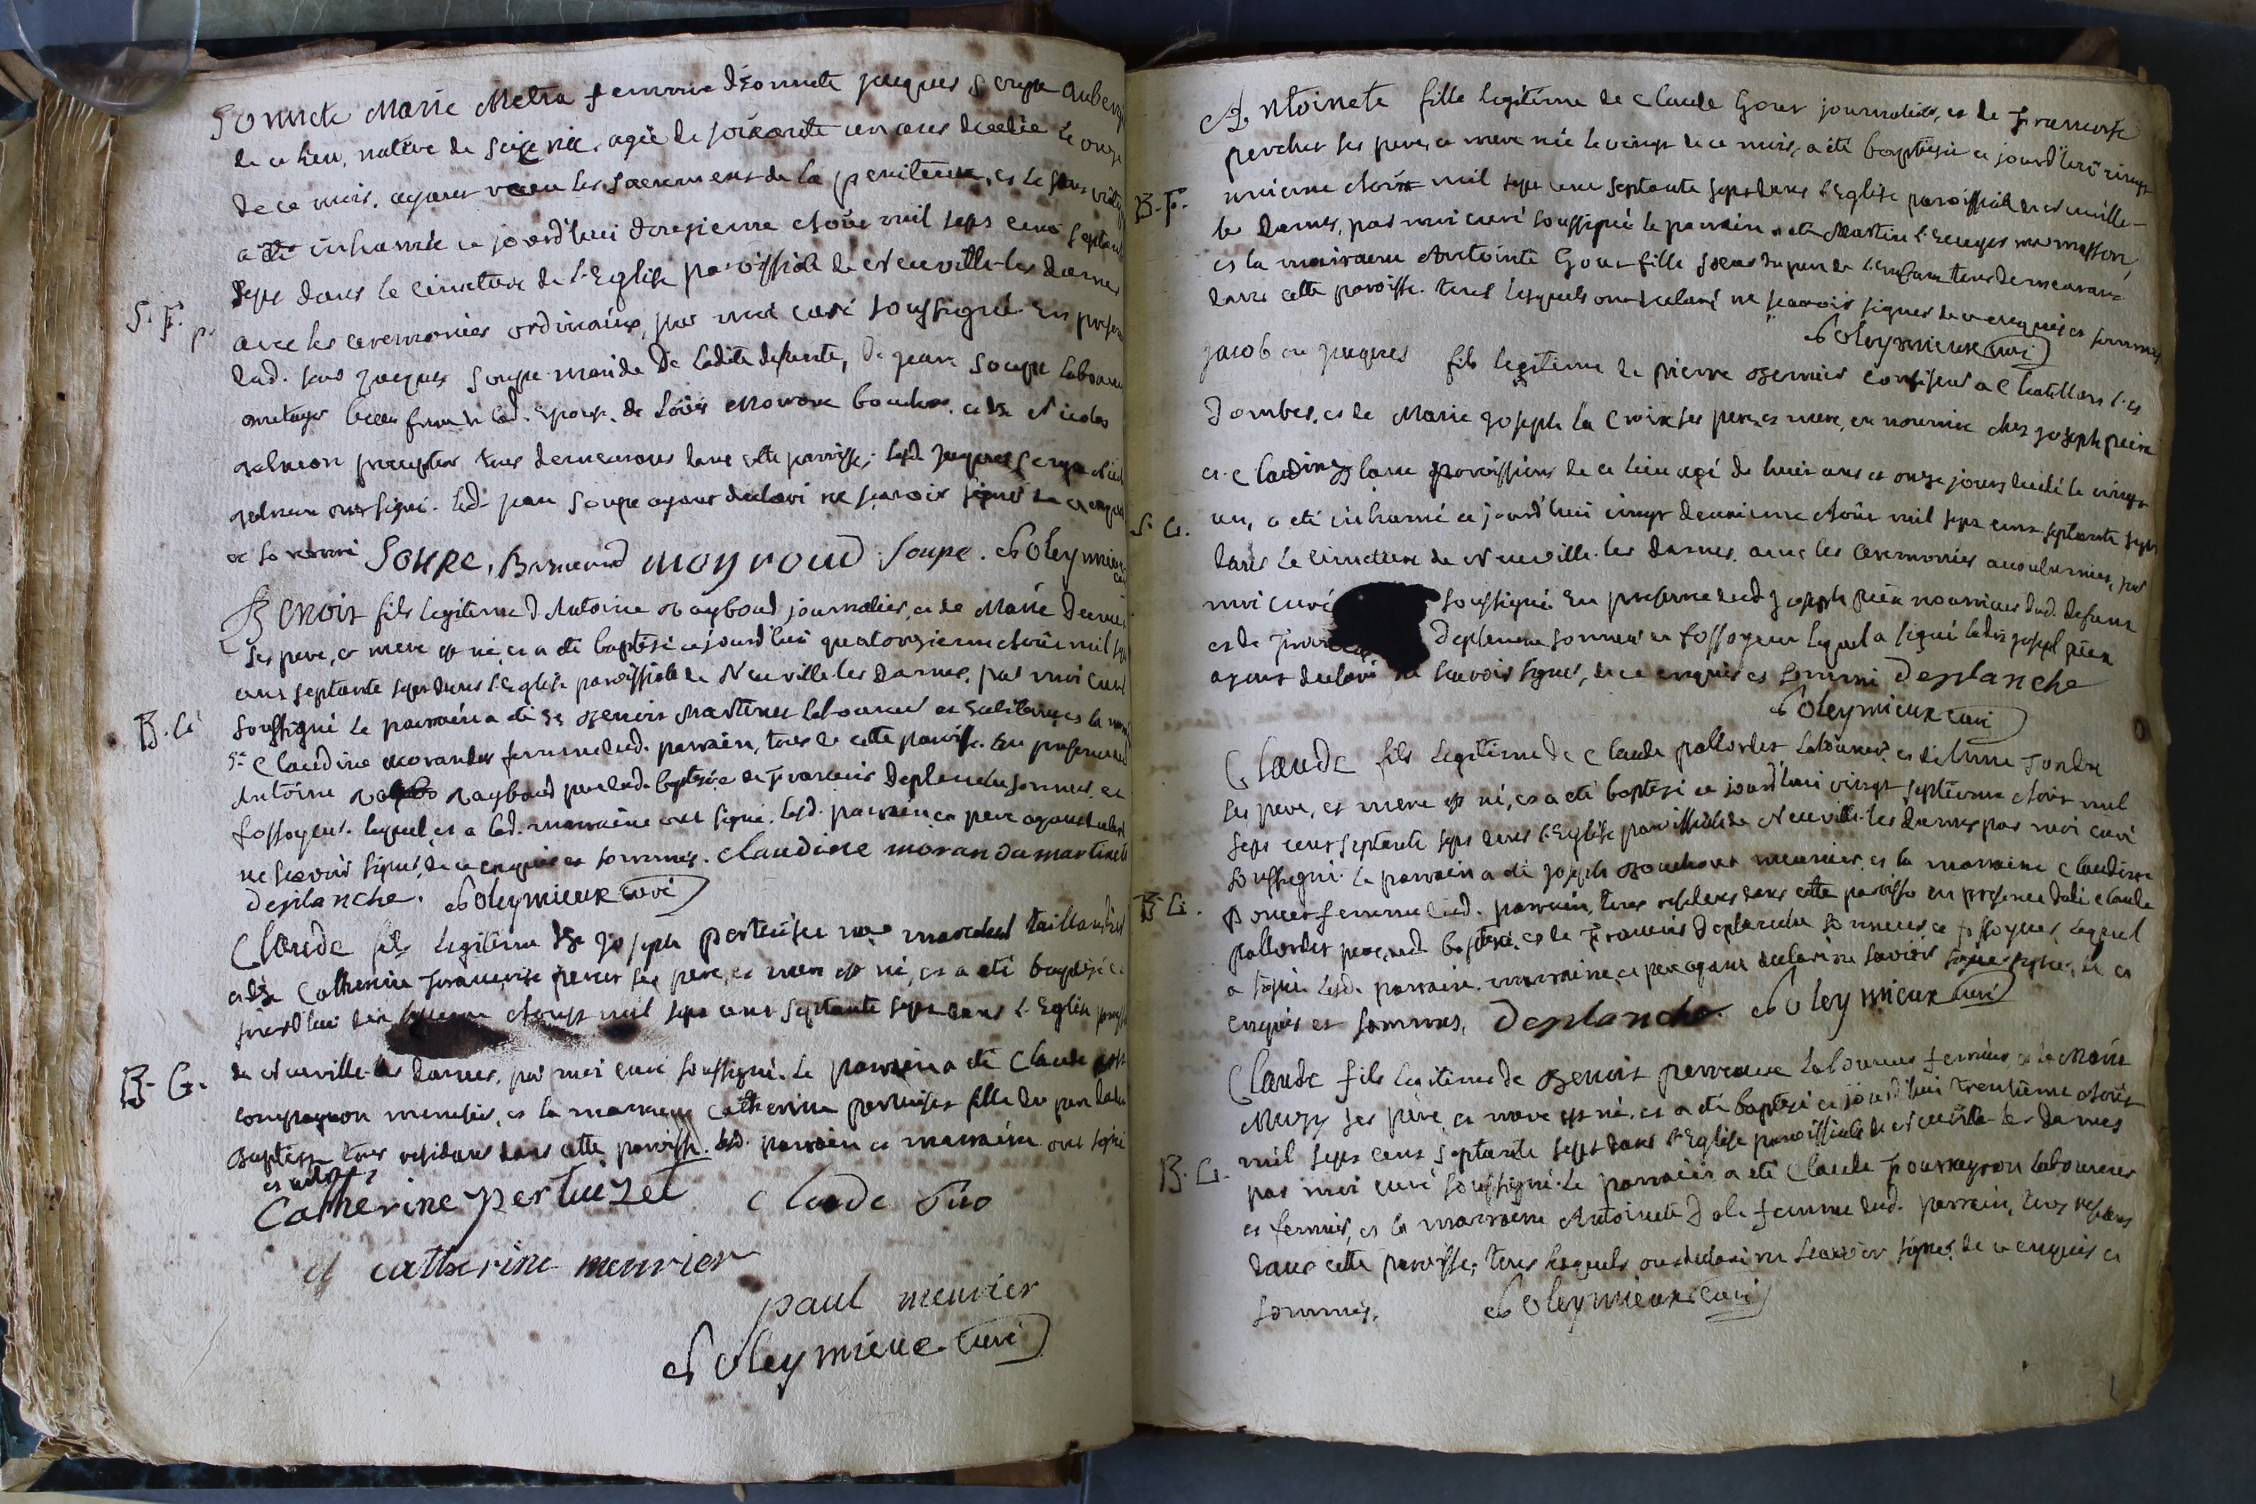 honnete Marie Metra femme d'honnete jacques Soupe Auberg
de ce lieu, native de agée de soixante un ans decedée le onze
de ce mois, ayant recu les sacrements de la penitence, et le
a été inhumée ce jourd'hui douzieme Aout mil sept cent septante
sept dans le cimetiere de l'Eglise paroissiale de Neuville les dames
S. F. p.
avec les ceremonies ordinaires, par moi curé soussigné En presen
dud. jacques Soupe mari de Ladite defunte, De jean Soupe laboureur
beau frere de lad. de Loüis boucher, et de Nicolas
precepteur tous demeurans dans cette paroisse; led. jacques Soupe
ont signé. led. jean Soupe ayant declaré ne sçavoir signer de ce enquis
et sommé Soupe, moyroud Soupe. Soleymieux
Benoit fils legitime d'Antoine Raybaud journalier, et de Marie
ses pere, et mere est né, et a été baptisé cejourd'hui quatorzieme Aoüt mil sept
cent septante sept dans l'Eglise paroissiale de Neuville les dames, par moi curé
B. G.
soussigné Le parrain a été Sr Benoit Martinet laboureur et la
Sr Claudine morandas femme dud. parrain, tous de cette paroisse. En presence de
Antoine Raybaud pere dud. baptisé, et de Francois Deplanche sonneur, et
fossoyeur. lequel, et a lad. marraine ont signé. led. parrain, et pere ayant declaré
ne sçavoir signer, de ce enquis et sommés. claudine morandas martinet
deplanche. Soleymieux curé
Claude fils legitime de joseph pertuiset me marechal taillandier
et de Catherine Francoise ses pere, et mere est né, et a été baptisé ce
jourd'hui Aoust mil sept cent septante sept dans l'Eglise paroiss
B. G.
de Neuville les dames, par moi curé soussigné. Le parrain a été Claude
compagnon menusier, et la marraine Catherine pertuiset fille du pere dudit
Baptisé tous residans dans cette paroisse. led. parrain et marraine ont signé
Catherine pertuizet claude
et catherine meunier
paul meunier
Soleymieux curé
Antoinete fille legitime de Claude Gour journalier, et de Francoise
perchet ses pere, et mere née le vingt de ce mois, a été baptisée ce jourd'hui vingt
unieme Aoüt mil sept cent septante sept dans l'Eglise paroissiale de Neuville
B. F.
les dames, par moi curé soussigné Le parrain a été Martin me masson,
et la marraine Antointe Gour fille soeur du pere de l'enfant tous demeurans
dans cette paroisse. tous lesquels ont declaré ne sçavoir signer de ce enquis et sommés
Soleymieux curé
jacob ou jacques fils legitime de pierre Bernier confiseur a Chatillon les
Dombes, et de Marie joseph la Croix ses pere, et mere, en nourrice chez joseph
et Claudine paroissiens de ce lieu agé de huit ans et onze jours, decedé le vingt
S. G.
un, a été inhumé ce jourd'hui vingt deuxieme Aoüt mil sept cent septante sept
dans le cimetiere de Neuville les dames, avec les ceremonies accoutumées, par
moi curé soussigné En presence dud. joseph nourricier dud. defunt
et de Deplanche sonneur et fossoyeur lequel a signé ledit joseph
ayant declaré ne sçavoir signer, de ce enquis et sommé Deplanche
Soleymieux curé
Claude fils legitime de Claude pallordet laboureur, et
ses pere, et mere est né, et a été baptisé ce jourd'hui vingt septieme Aoüt mil
sept cent septante sept dans l'Eglise paroissiale de Neuville les dames par moi curé
soussigné. Le parrain a été joseph meunier, et la marraine Claudine
B. G.
Poncet femme dud. parrain, tous residens dans cette paroisse en presence dudit Claude
pallordet pere dud. baptisé, et de Francois Deplanche sonneur, et fossoyeur, lequel
a signé. lesd. parrain, marraine, et pere ayant declaré ne sçavoir signer, de ce
enquis et sommés, Deplanche Soleymieux curé
Claude fils legitime de Benoit perreaux laboureur fermier, et de Marie
ses pere, et mere est né, et a été baptisé ce jourd'hui trentieme Aoüt
mil sept cent septante sept dans l'Eglise paroissiale de Neuville les dames
B. G.
par moi curé soussigné. Le parrain a été Claude laboureur
et fermier, et la marraine Antoinette femme dud. parrain, tous residens
dans cette paroisse, tous lesquels ont declaré ne sçavoir signer, de ce enquis et
sommés, Soleymieux curé